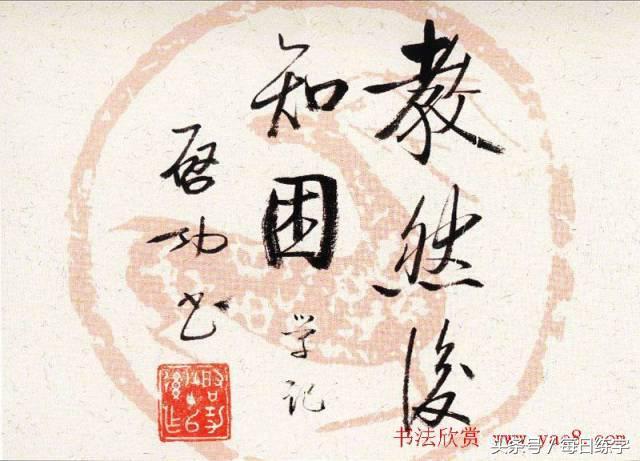 教然後
知困
学记
启功书
书法欣赏 www.yac8.com
头条号/每日练字